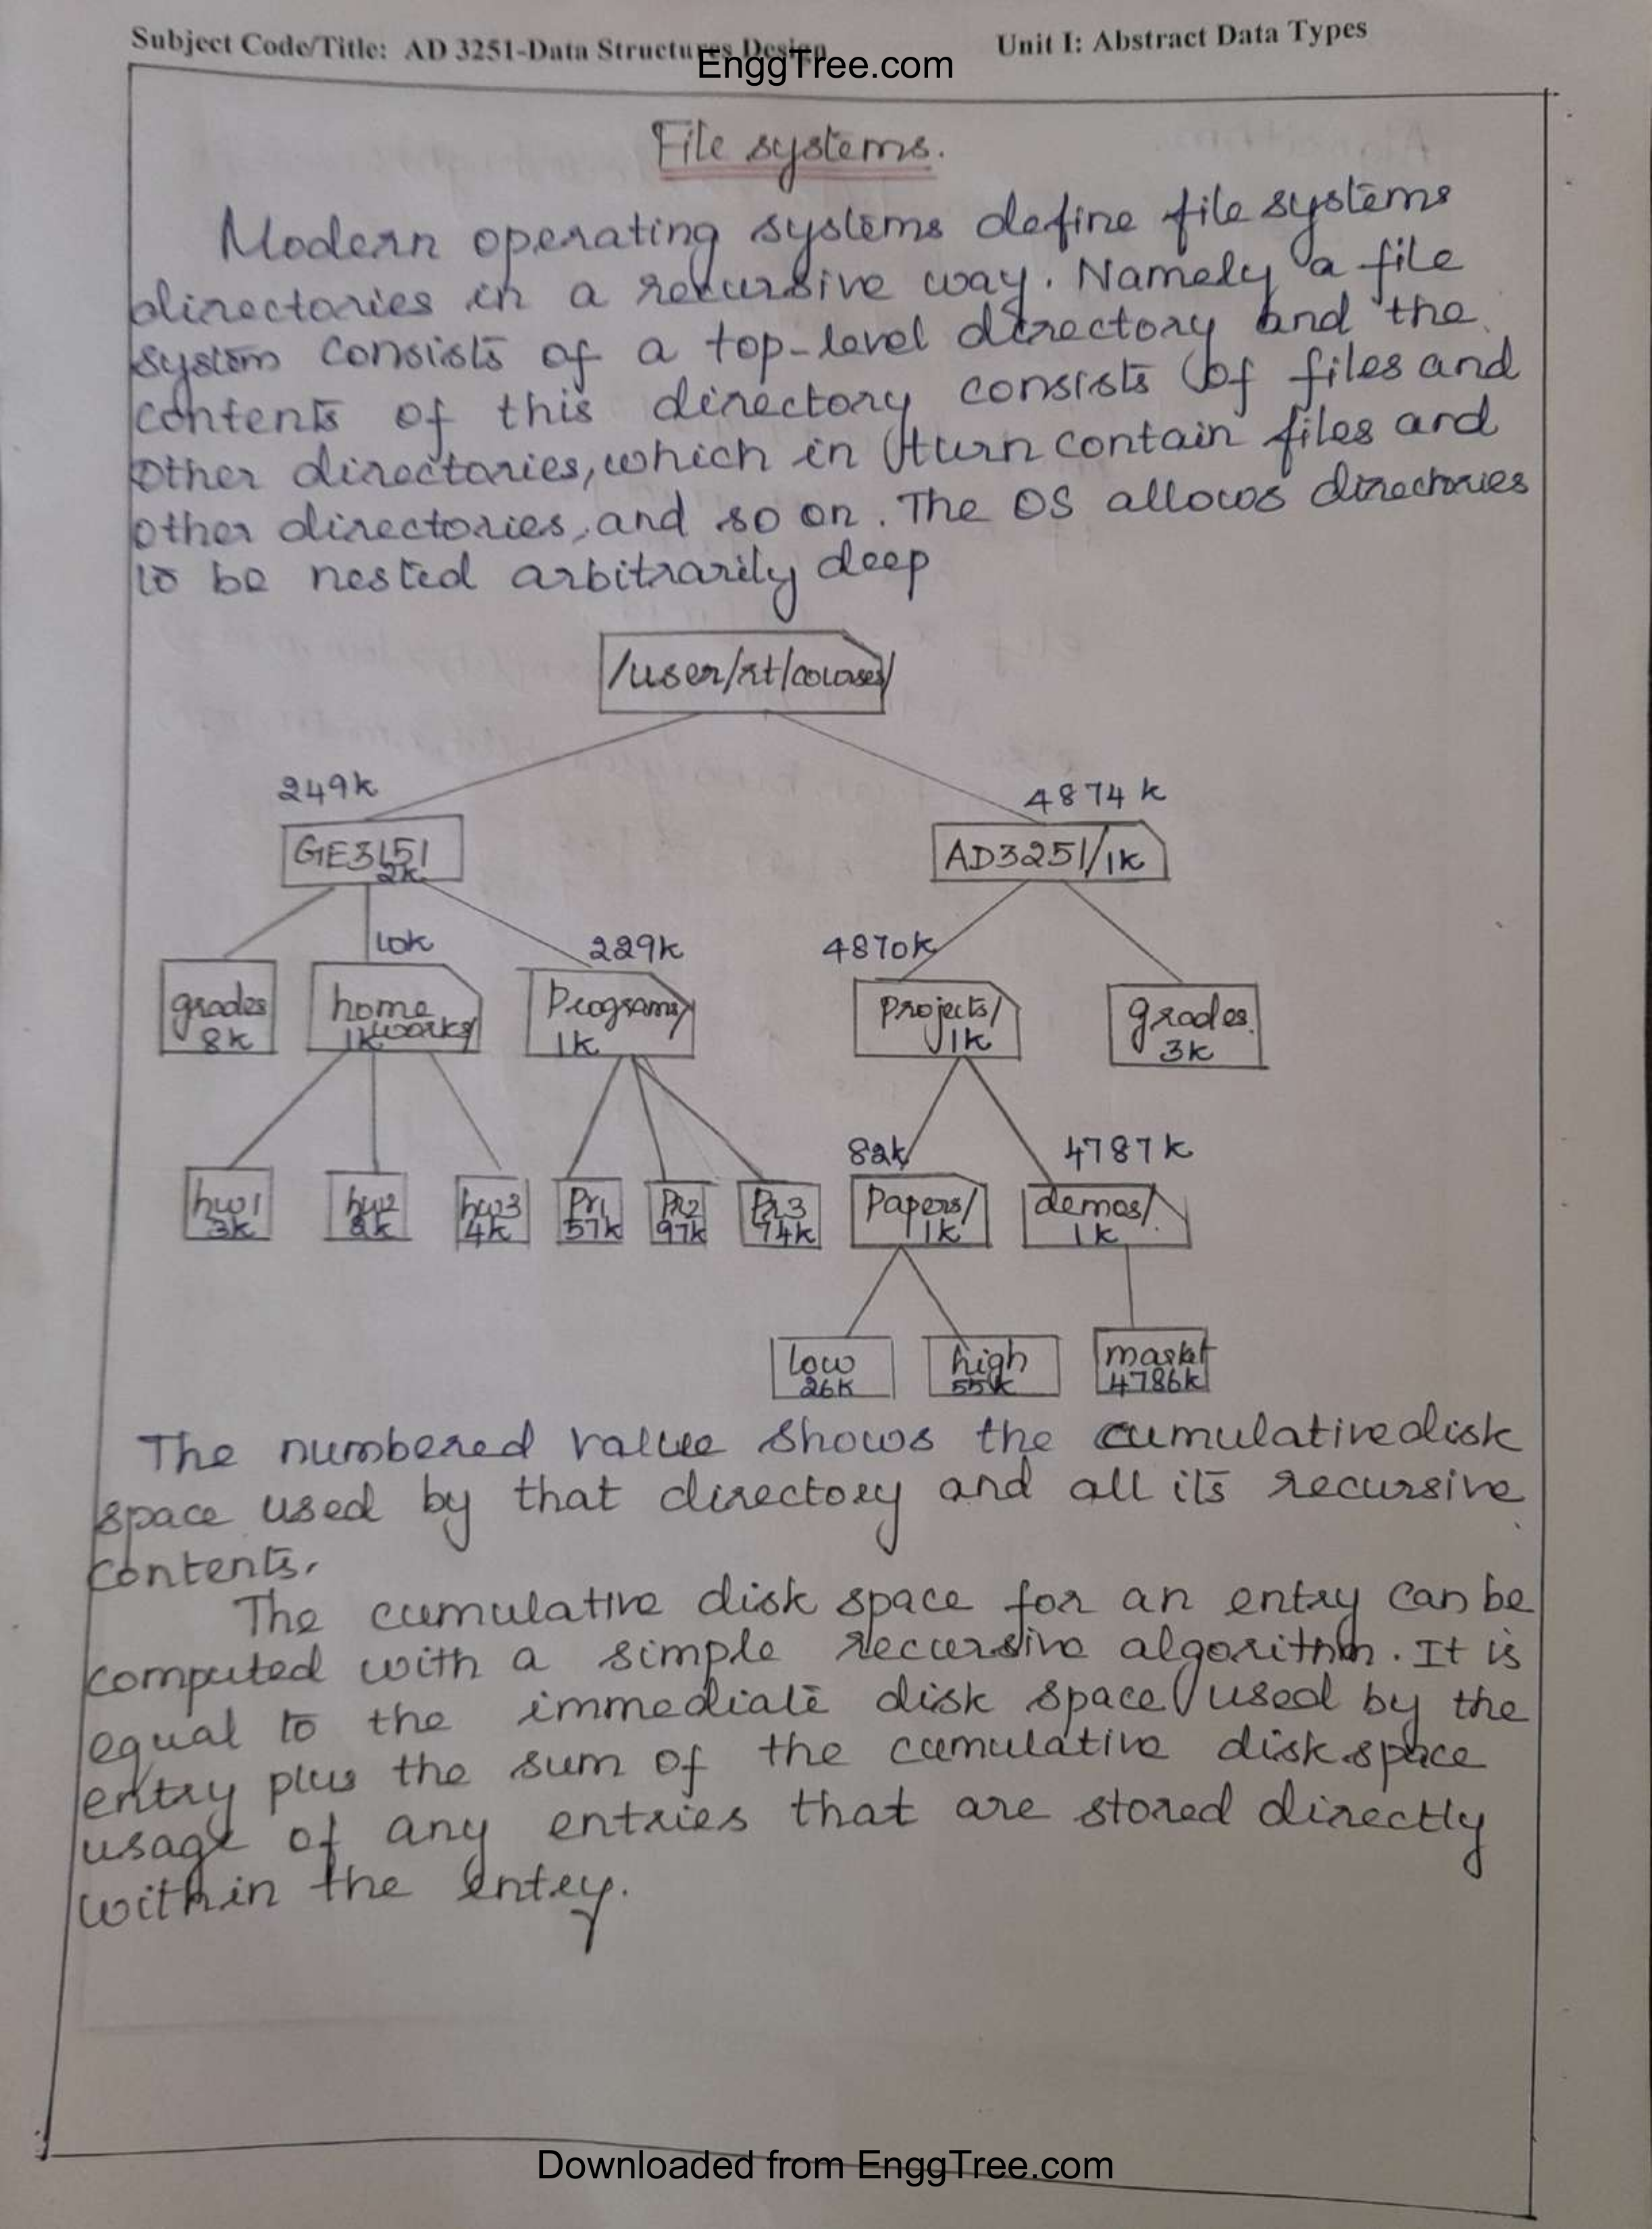 Subject Code/Title: AD 3251-Data Structures Design Unit I: Abstract Data Types
EnggTree.com
File systems.
Modern operating systems define file systems
directories in a recursive way. Namely a file
system consists of a top-level directory and the
contents of this directory consists of files and
other directories, which in turn contain files and
other directories, and so on. The OS allows directories
to be nested arbitrarily deep
/user/rt/courses/
249k 4874k
GE3151 2k AD3251/1k
10k 229k 4870k
grades 8k home works/ 1k Programs/ 1k Projects/ 1k grades 3k
82k 4787k
hw1 3k hw2 2k hw3 4k Pr1 57k Pr2 97k Pr3 74k Papers/ 1k demos/ 1k
low 26k high 55k market 4786k
The numbered value shows the cumulative disk
space used by that directory and all its recursive
contents.
The cumulative disk space for an entry can be
computed with a simple recursive algorithm. It is
equal to the immediate disk space used by the
entry plus the sum of the cumulative disk space
usage of any entries that are stored directly
within the entry.
Downloaded from EnggTree.com